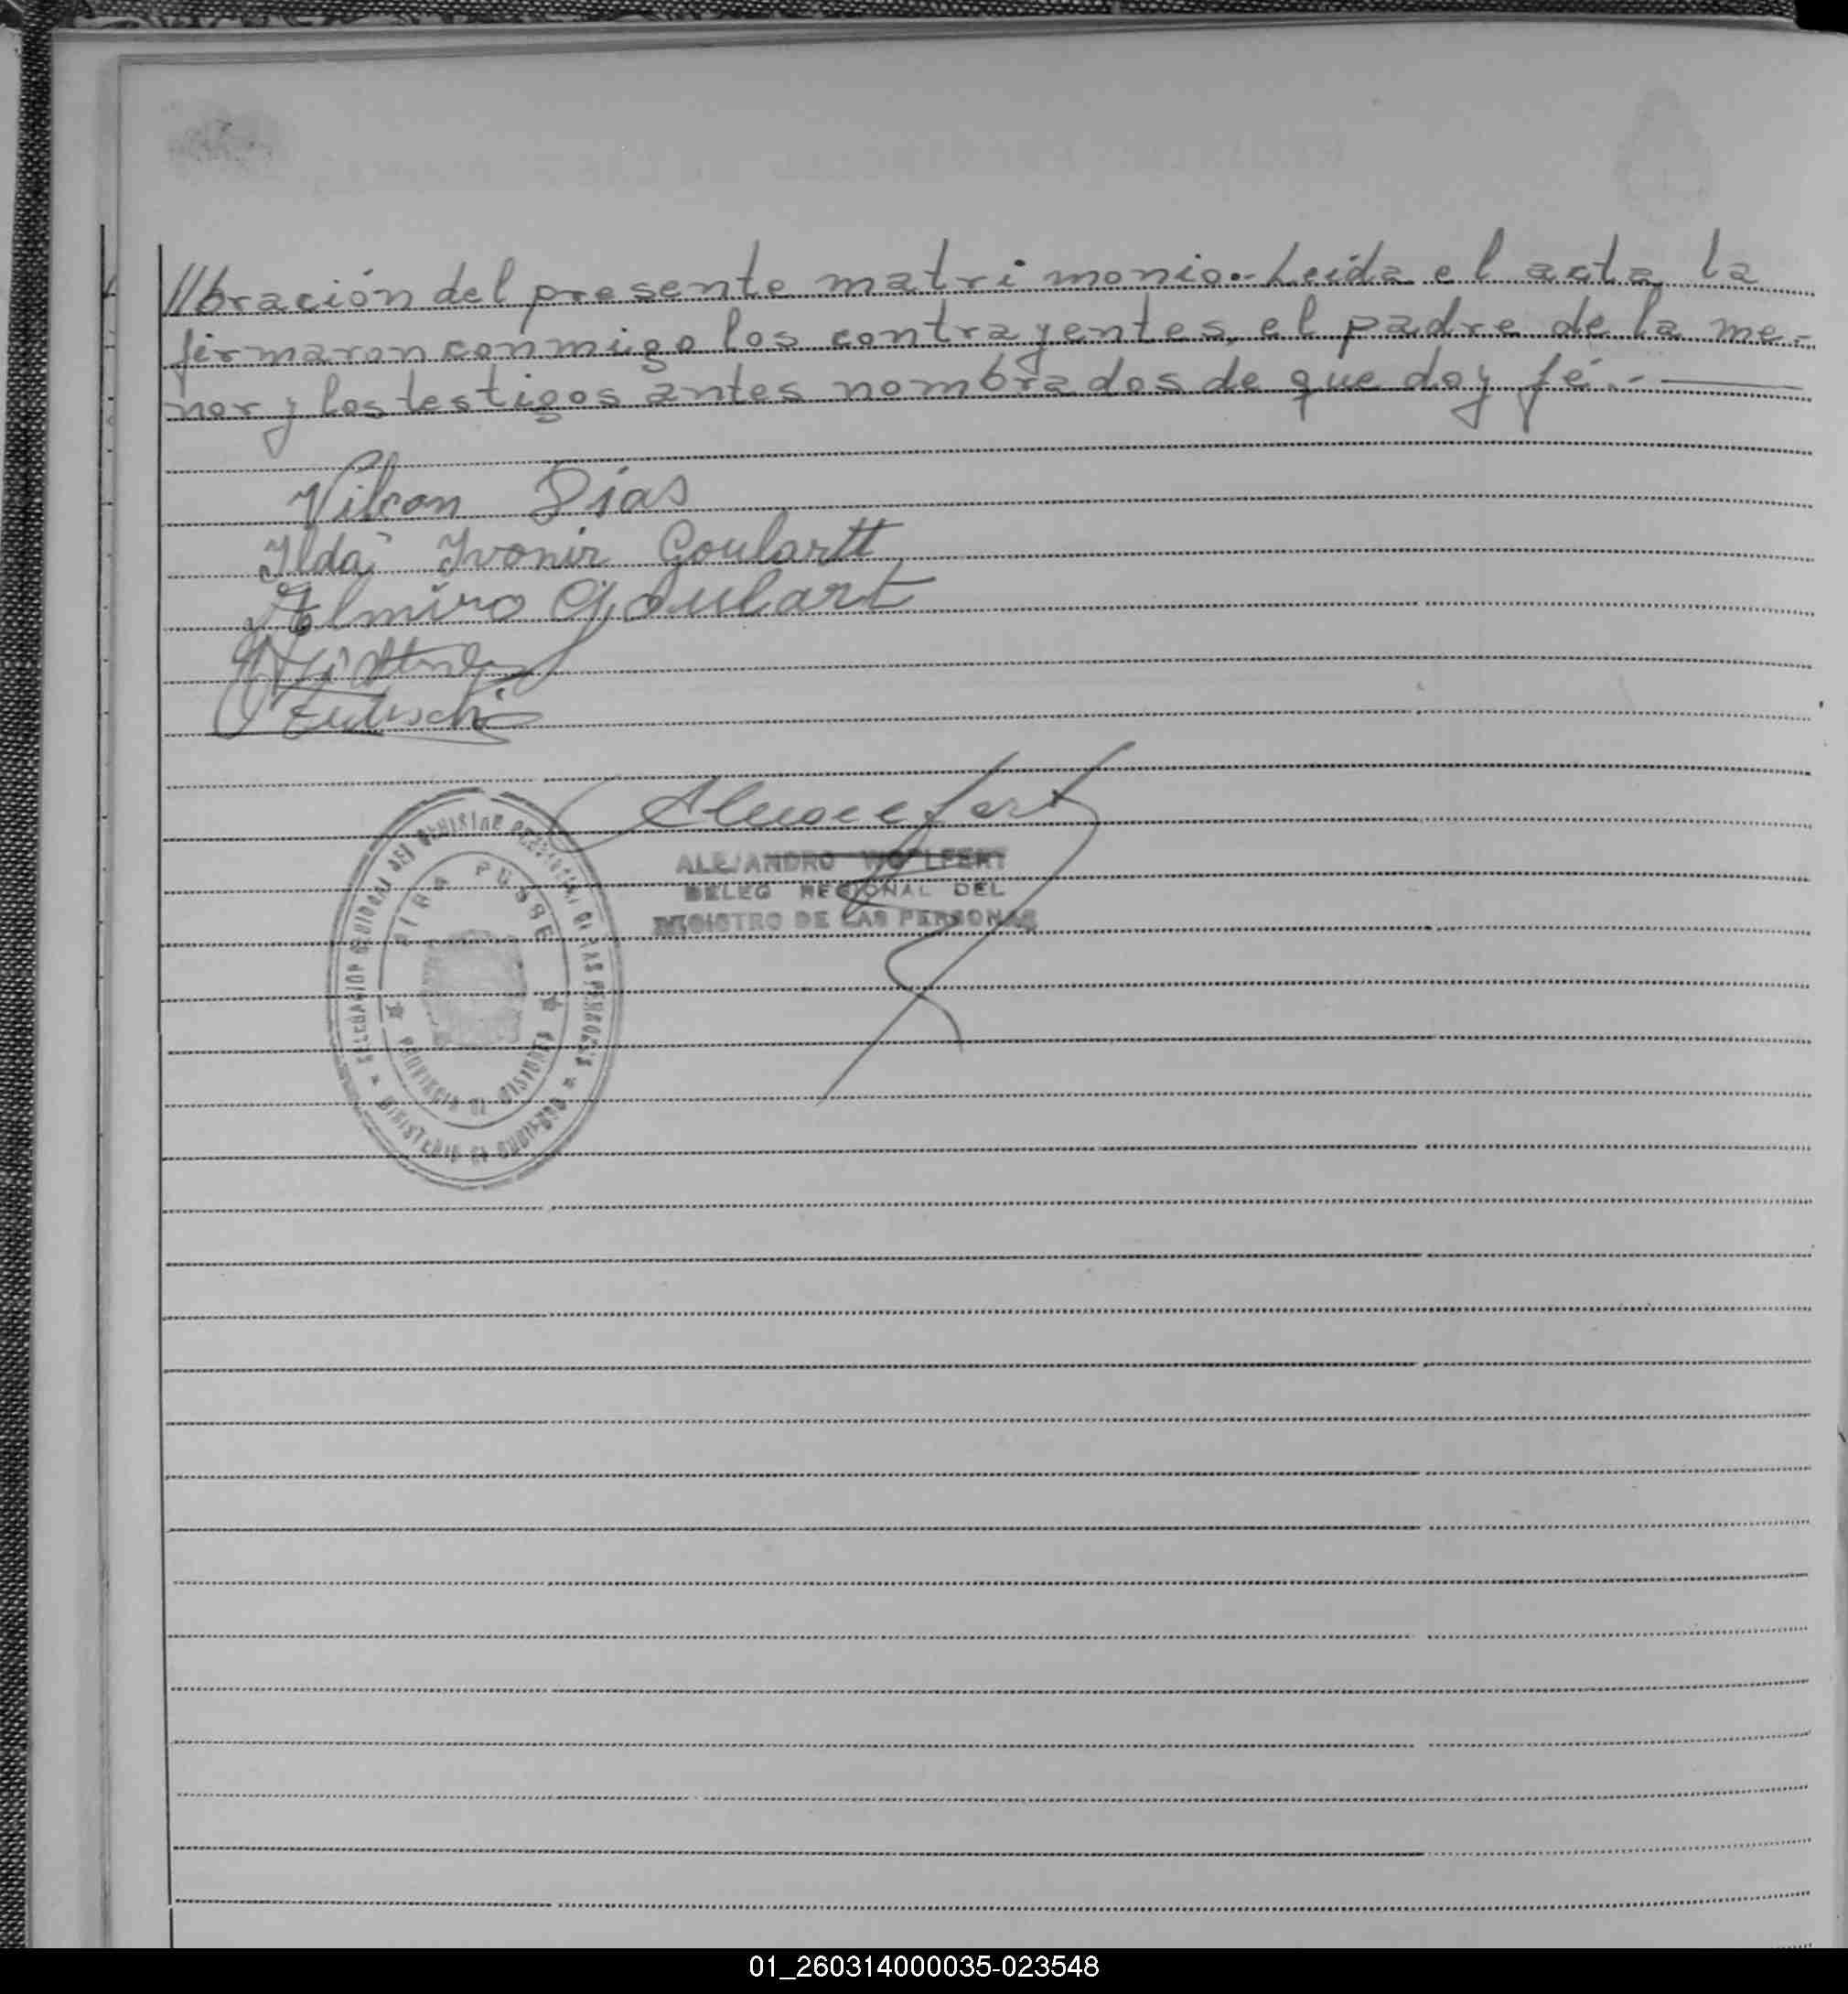 //bración del presente matrimonio.- Leída el acta la
firmaron conmigo los contrayentes, el padre de la me-
nor y los testigos antes nombrados de que doy fé.-
Vilson Dias
Ilda Ivonir Goulartt
Almiro Goulart
ALEJANDRO WOLFERT
DELEG REGIONAL DEL
REGISTRO DE LAS PERSONAS
DELEGACION REGIONAL DEL REGISTRO PROVINCIAL DE LAS PERSONAS
MINISTERIO DE GOBIERNO
PROVINCIA DE MISIONES
01_260314000035-023548